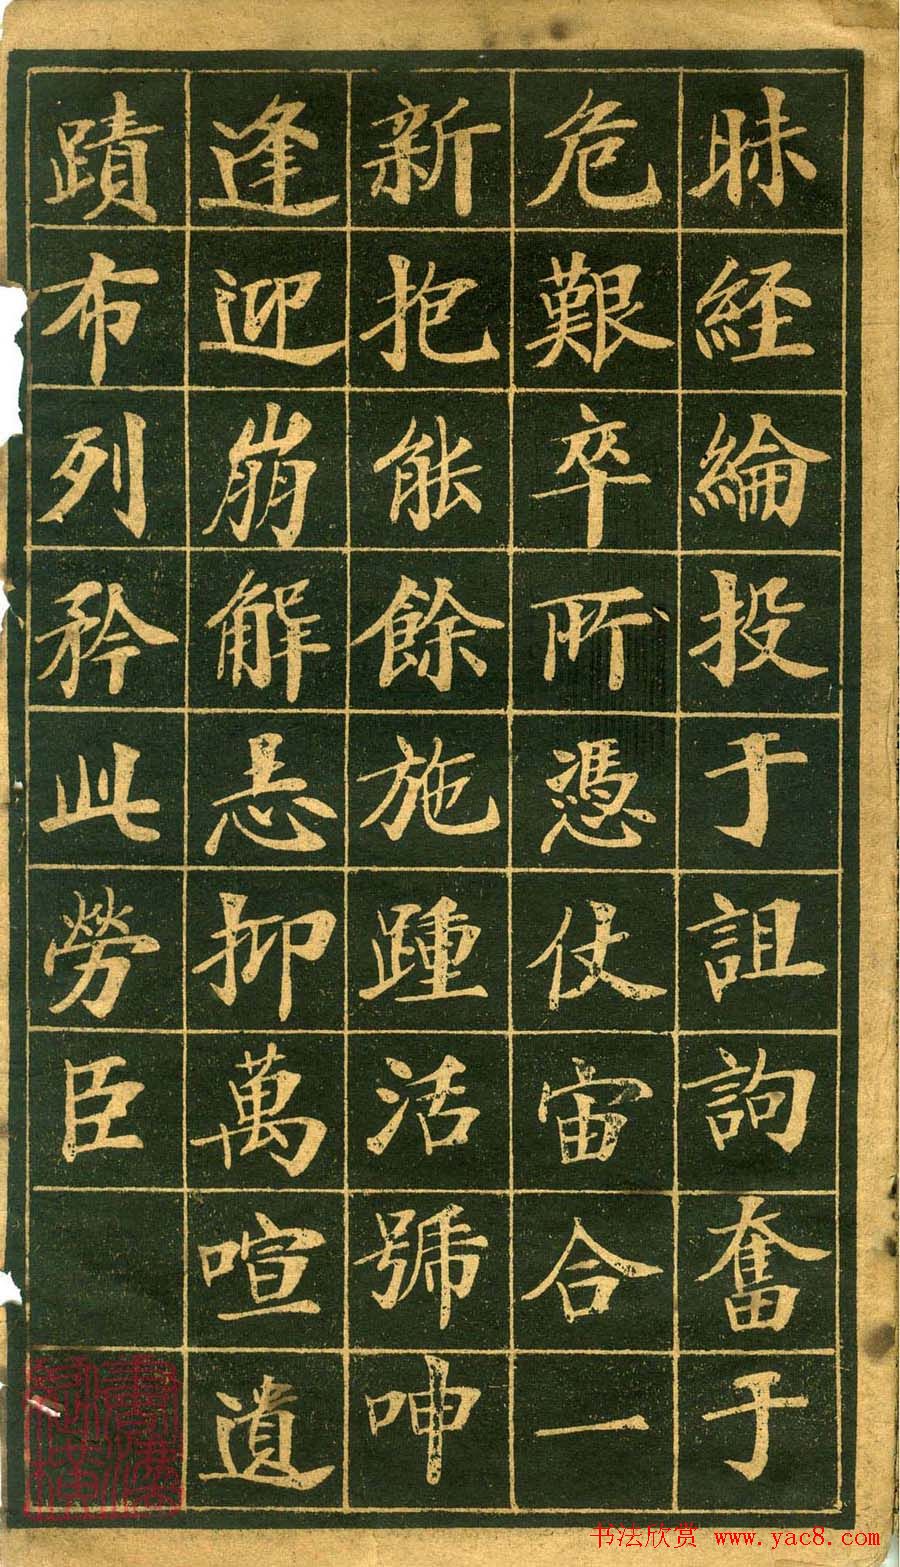 昧經綸投于詛訽奮于
危艱卒所憑仗宙合一
新抱能餘施踵活號呻
逢迎崩解恚抑萬喧遺
蹟布列矜此勞臣
书法欣赏 www.yac8.com